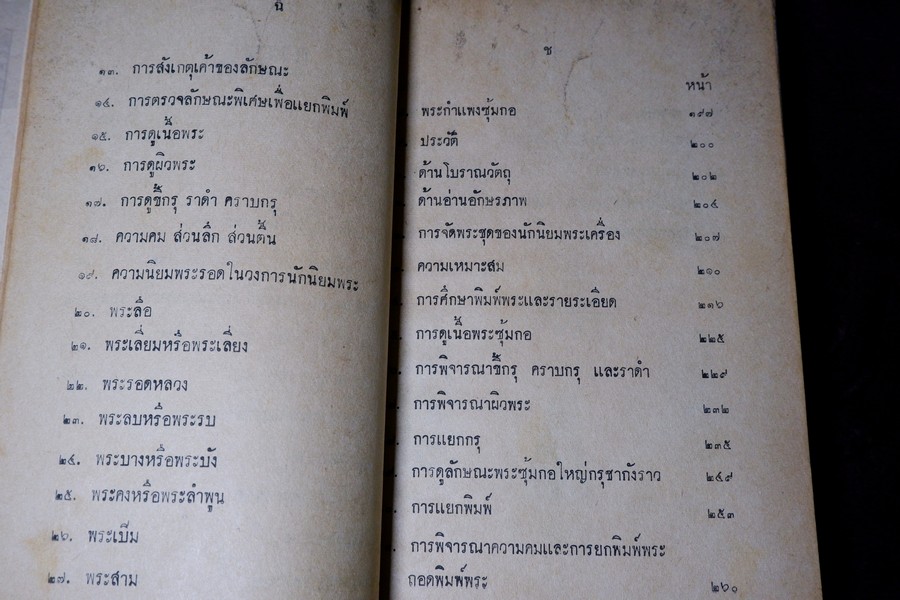 ฉ
๑๓. การสังเกตุเค้าของลักษณะ
๑๔. การตรวจลักษณะพิเศษเพื่อแยกพิมพ์
๑๕. การดูเนื้อพระ
๑๖. การดูผิวพระ
๑๗. การดูขี้กรุ ราดำ คราบกรุ
๑๘. ความคม ส่วนลึก ส่วนตื้น
๑๙. ความนิยมพระรอดในวงการนักนิยมพระ
๒๐. พระลือ
๒๑. พระเลี่ยมหรือพระเลี่ยง
๒๒. พระรอดหลวง
๒๓. พระลบหรือพระรบ
๒๔. พระบางหรือพระบัง
๒๕. พระคงหรือพระลำพูน
๒๖. พระเปิ่ม
๒๗. พระสาม
ช
หน้า
พระกำแพงซุ้มกอ ๑๙๗
ประวัติ ๒๐๐
ด้านโบราณวัตถุ ๒๐๒
ด้านอ่านอักษรภาพ ๒๐๔
การจัดพระชุดของนักนิยมพระเครื่อง ๒๐๗
ความเหมาะสม ๒๑๐
การศึกษาพิมพ์พระและรายระเอียด ๒๑๖
การดูเนื้อพระซุ้มกอ ๒๒๕
การพิจารณาขี้กรุ คราบกรุ และราดำ ๒๒๙
การพิจารณาผิวพระ ๒๓๒
การแยกกรุ ๒๓๕
การดูลักษณะพระซุ้มกอใหญ่กรุชากังราว ๒๔๙
การแยกพิมพ์ ๒๕๓
การพิจารณาความคมและการยกพิมพ์พระ
ถอดพิมพ์พระ ๒๖๐